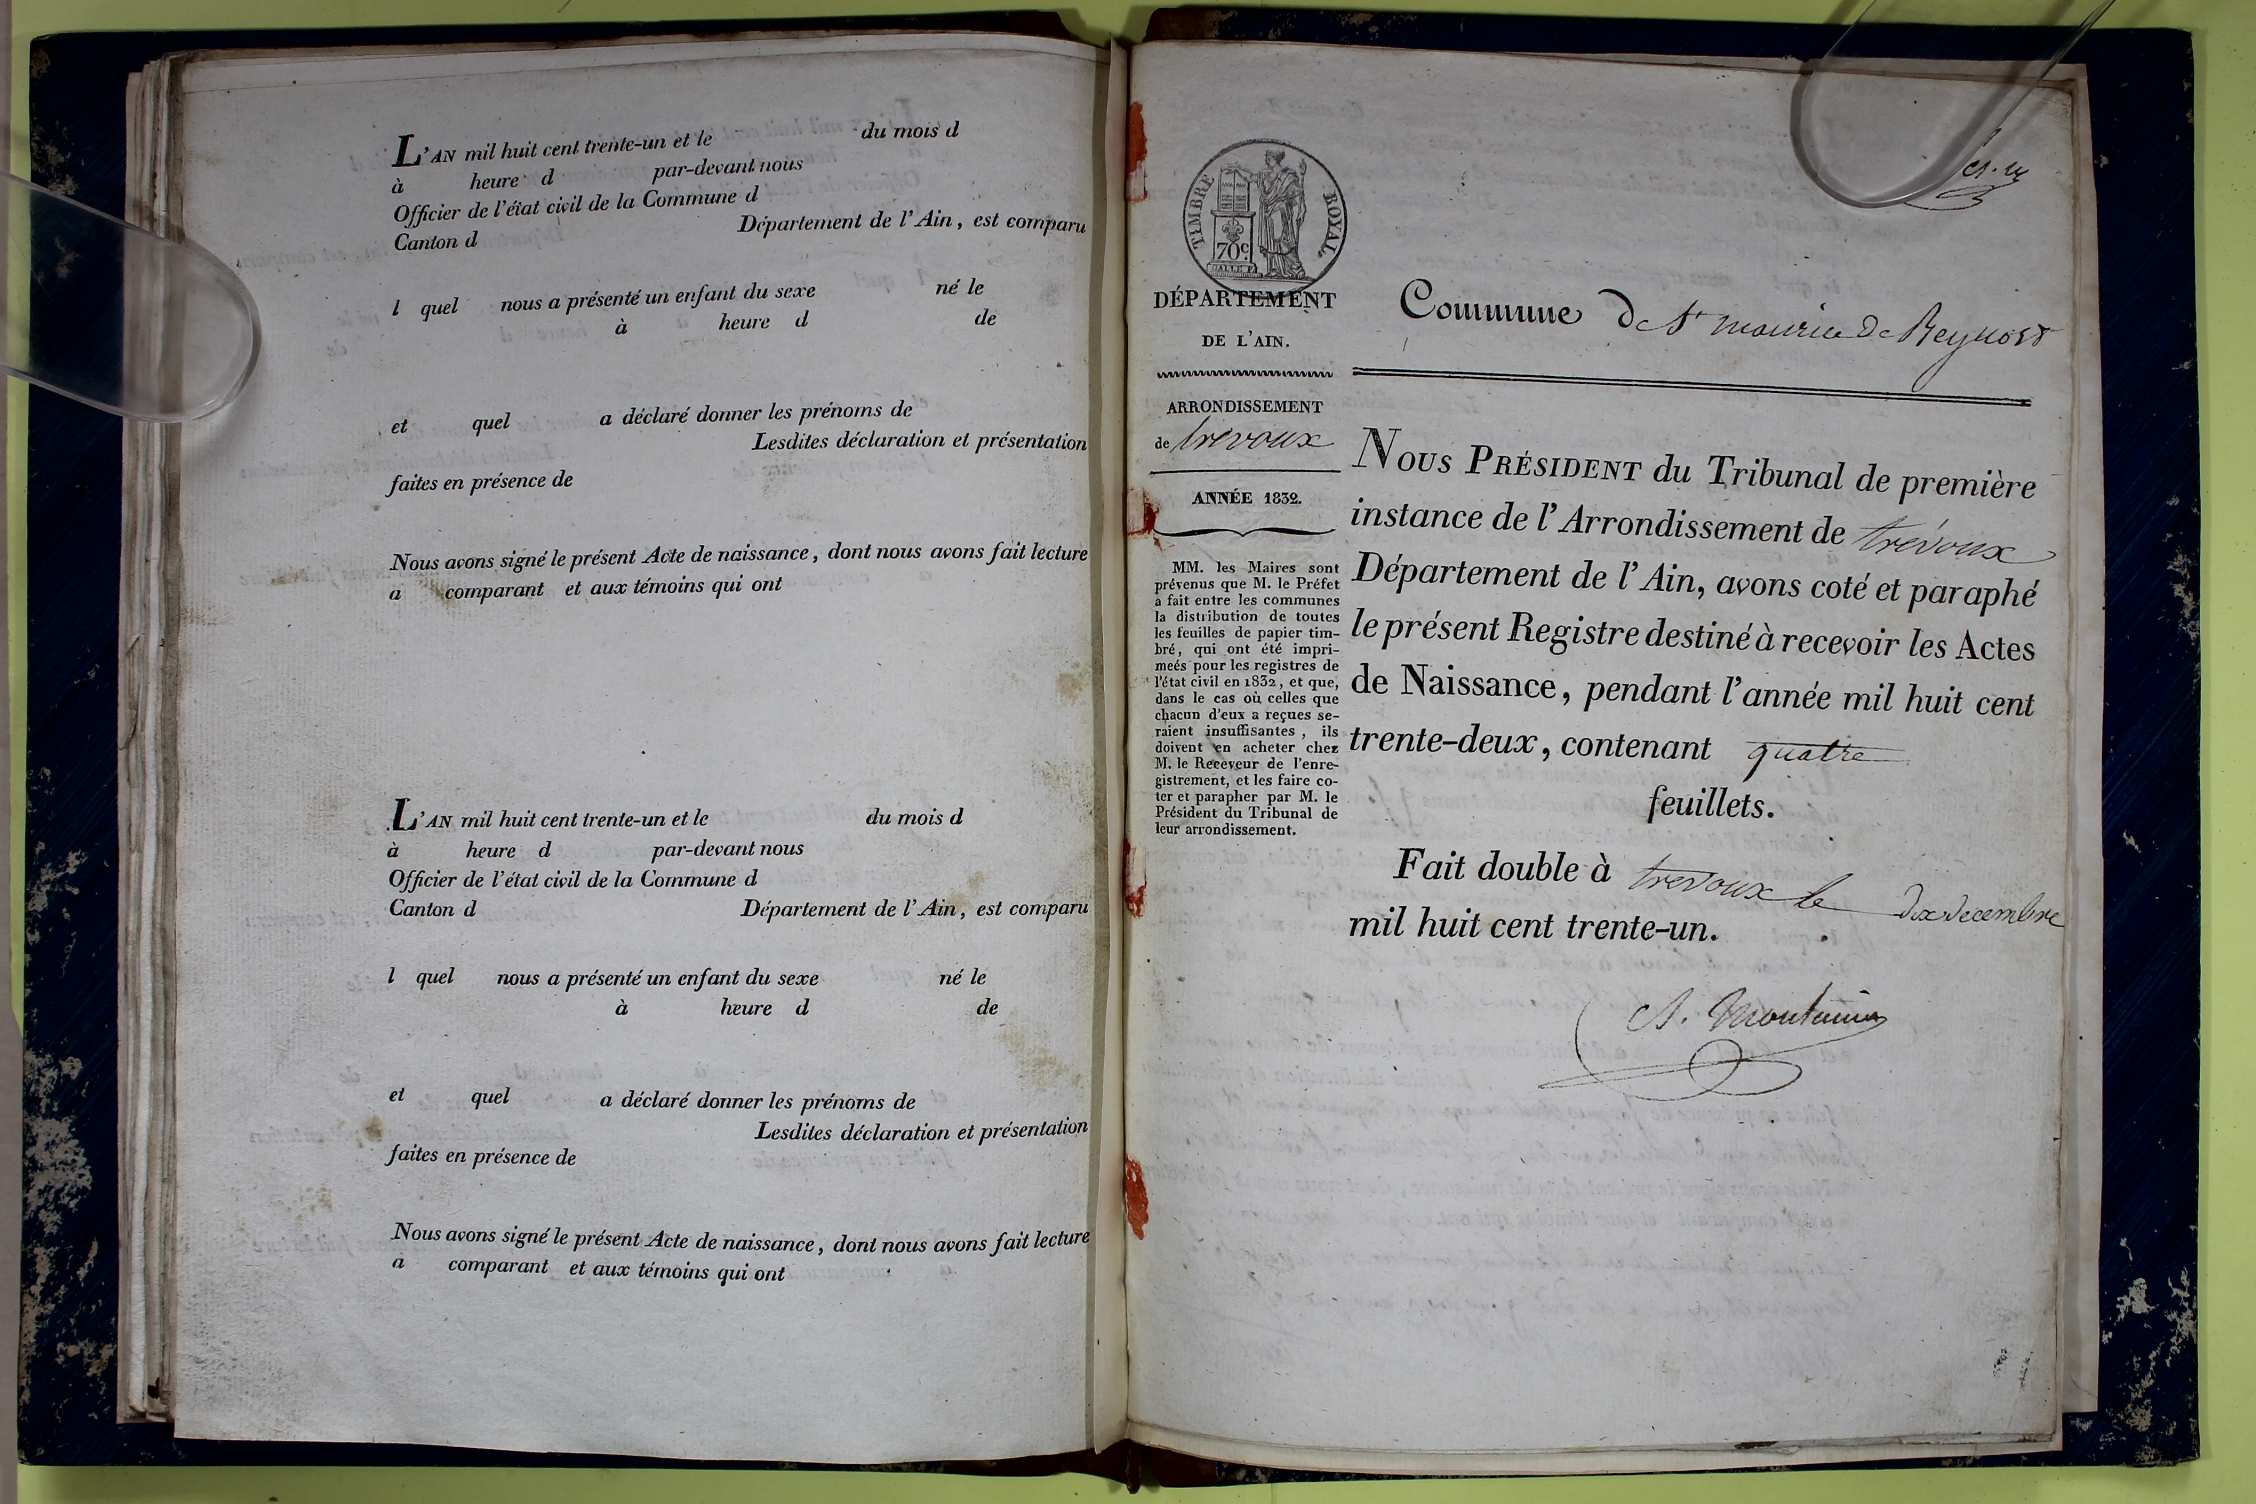 L'AN mil huit cent trente-un et le du mois d
à heure d par-devant nous
Officier de l'état civil de la Commune d
Canton d Département de l'Ain, est comparu
l quel nous a présenté un enfant du sexe né le
à heure d de
et quel a déclaré donner les prénoms de
Lesdites déclaration et présentation
faites en présence de
Nous avons signé le présent Acte de naissance, dont nous avons fait lecture
a comparant et aux témoins qui ont
L'AN mil huit cent trente-un et le du mois d
à heure d par-devant nous
Officier de l'état civil de la Commune d
Canton d Département de l'Ain, est comparu
l quel nous a présenté un enfant du sexe né le
à heure d de
et quel a déclaré donner les prénoms de
Lesdites déclaration et présentation
faites en présence de
Nous avons signé le présent Acte de naissance, dont nous avons fait lecture
a comparant et aux témoins qui ont
TIMBRE ROYAL.
70c.
DÉPARTEMENT
DE L'AIN.
ARRONDISSEMENT
de trévoux
ANNÉE 1832.
MM. les Maires sont
prévenus que M. le Préfet
a fait entre les communes
la distribution de toutes
les feuilles de papier tim-
bré, qui ont été impri-
meés pour les registres de
l'état civil en 1832, et que,
dans le cas où celles que
chacun d'eux a reçues se-
raient insuffisantes, ils
doivent en acheter chez
M. le Receveur de l'enre-
gistrement, et les faire co-
ter et parapher par M. le
Président du Tribunal de
leur arrondissement.
Commune de St maurice de Beynost
NOUS PRÉSIDENT du Tribunal de première
instance de l'Arrondissement de trévoux
Département de l'Ain, avons coté et paraphé
le présent Registre destiné à recevoir les Actes
de Naissance, pendant l'année mil huit cent
trente-deux, contenant quatre
feuillets.
Fait double à trevoux le dix decembre
mil huit cent trente-un.